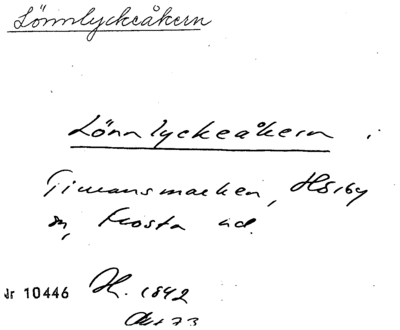 Lönnlyckeåkern
Lönnlyckeåkern i
Timansmarken, Hörby
sn, Frosta hd.
Jr 10446 H. 1842
Akt 73